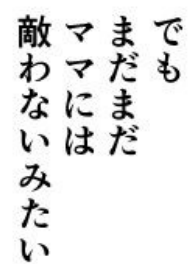 でも
まだまだ
ママには
敵わないみたい